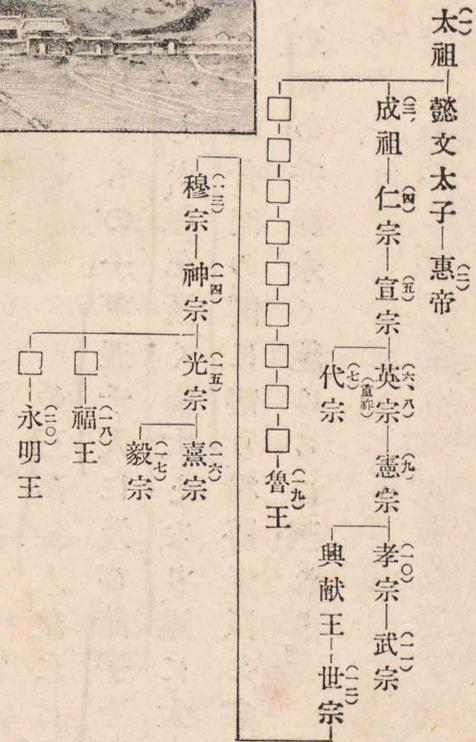 (一)太祖―懿文太子―惠帝(二)
(三)成祖―(四)仁宗―(五)宣宗―(六、八)英宗(重祚)―(九)憲宗―(一〇)孝宗―(一一)武宗
(七)代宗
興献王―(一二)世宗
□―□―□―□―□―□―□―□―□―(一九)魯王
(一三)穆宗―(一四)神宗―(一五)光宗―(一六)熹宗
(一七)毅宗
□―(一八)福王
□―(二〇)永明王